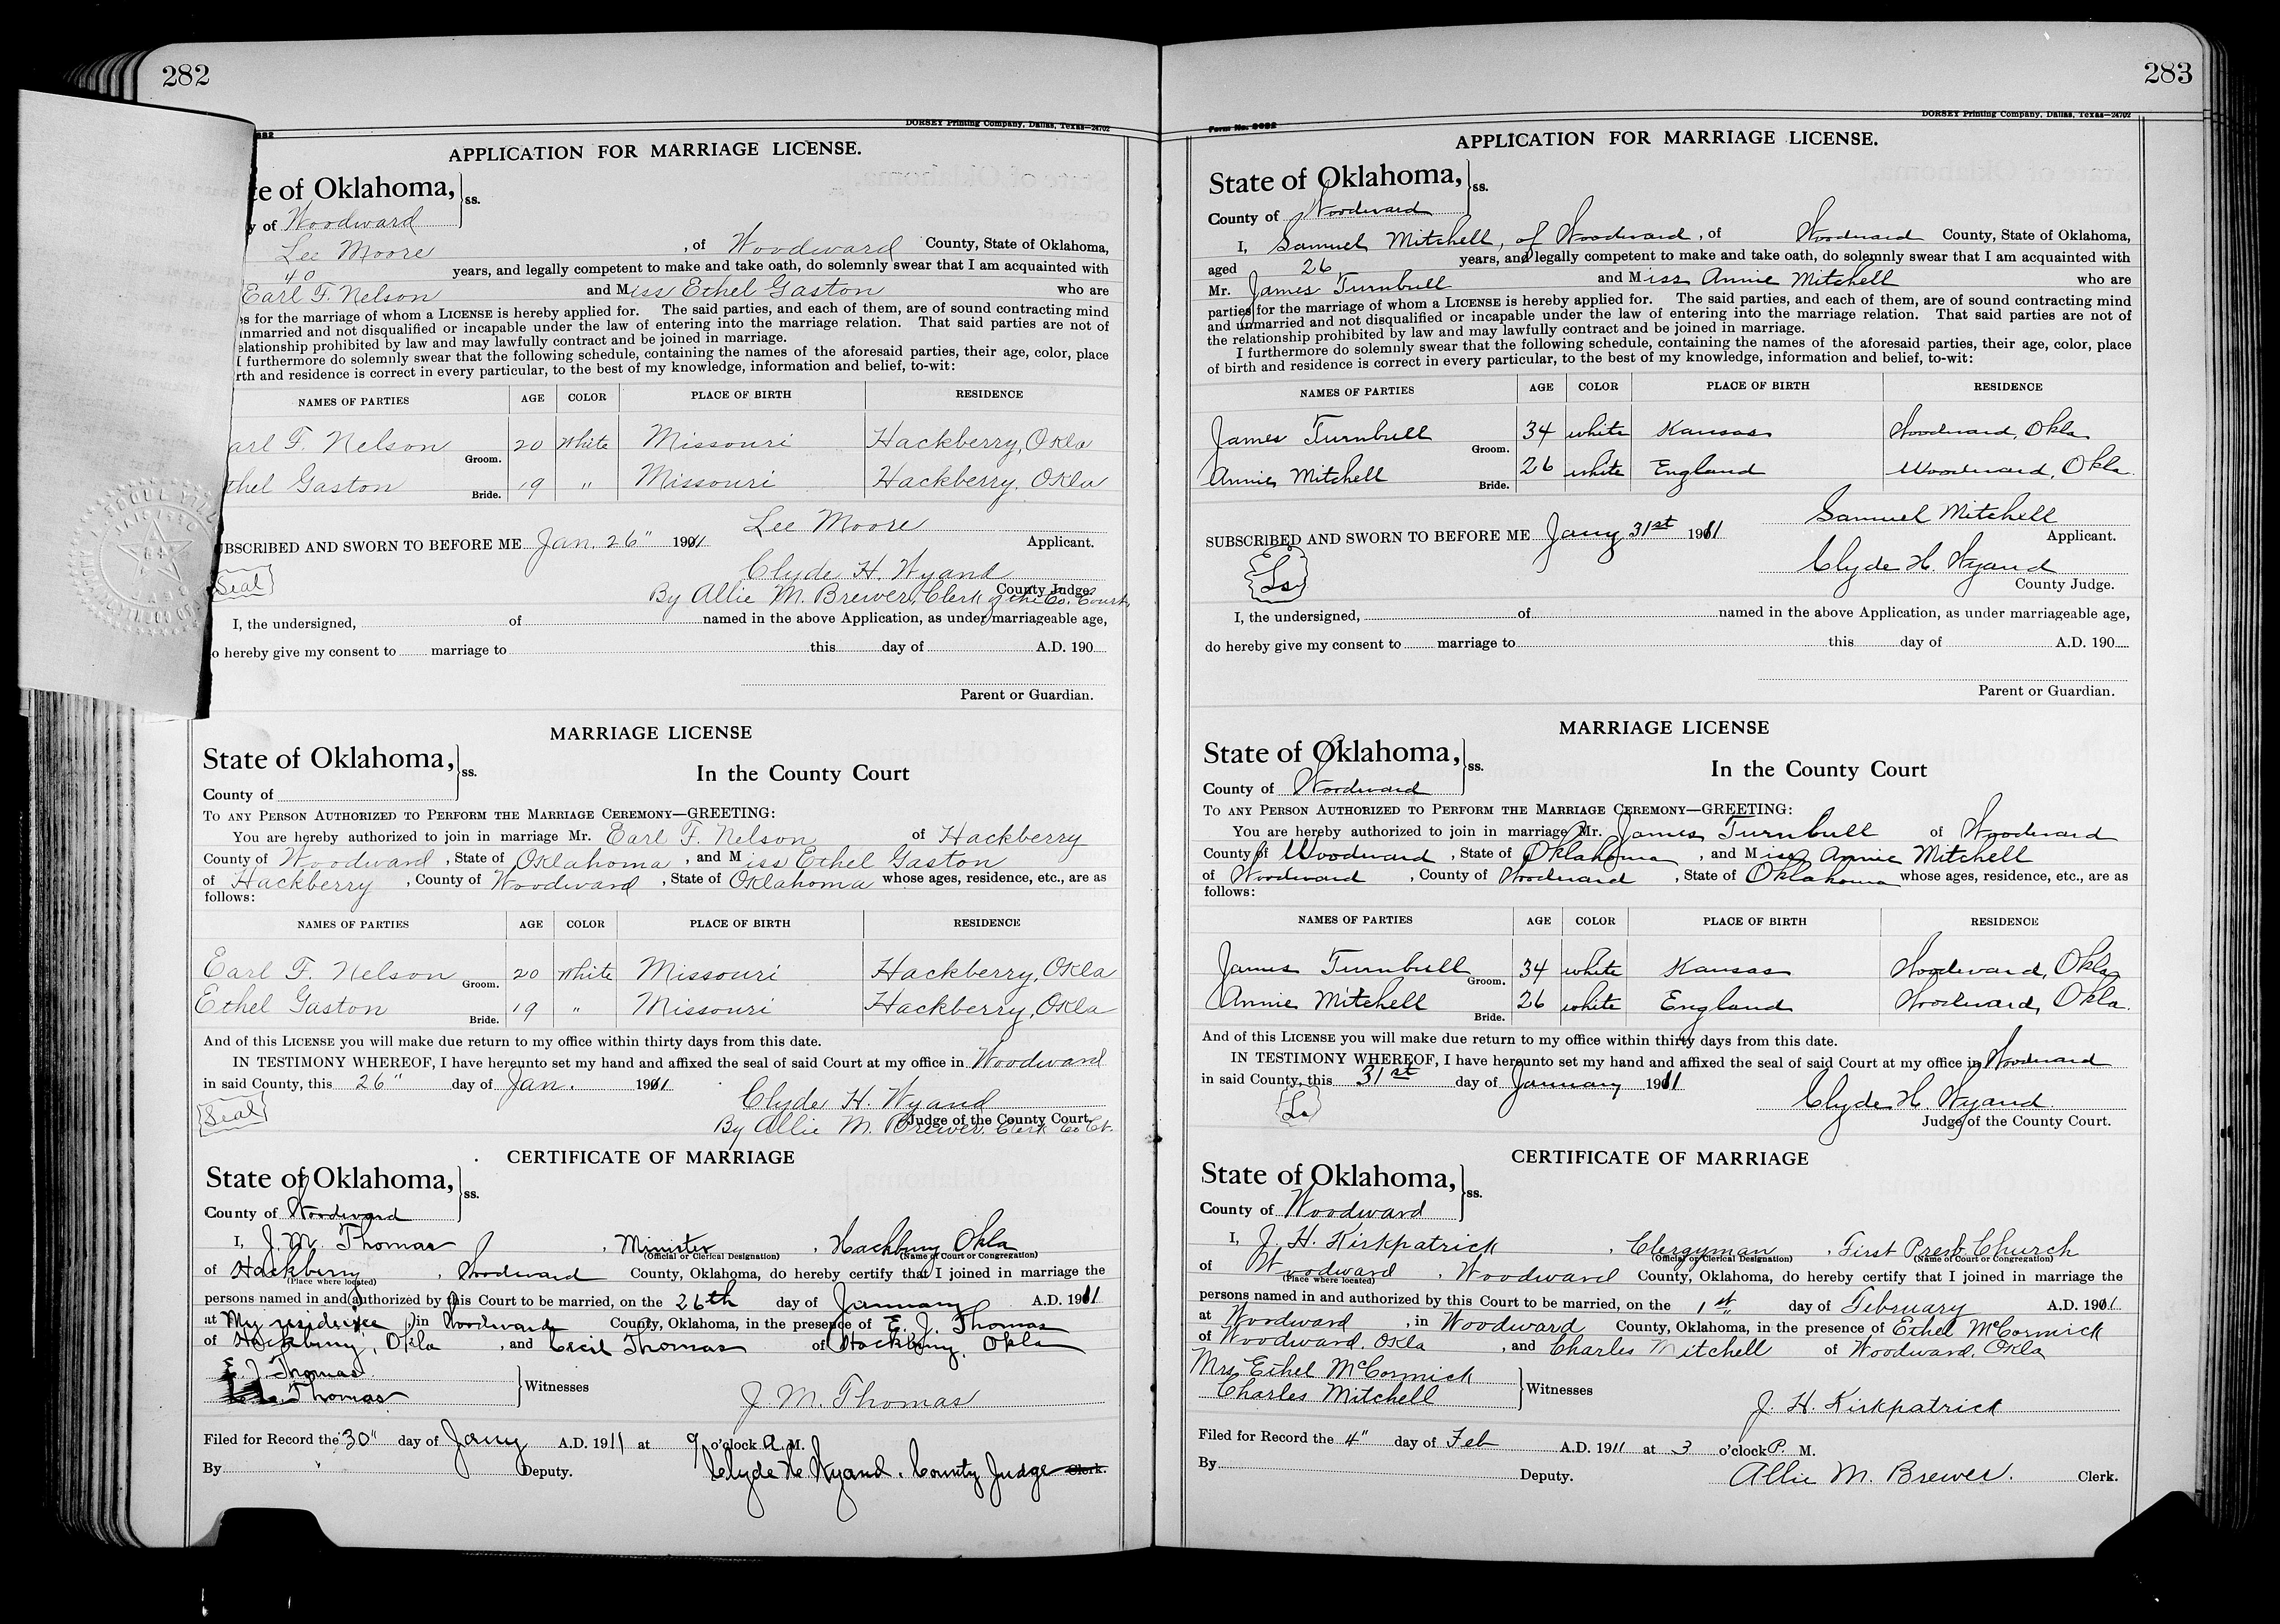 282
DORSEY Printing Company, Dallas, Texas—24702
APPLICATION FOR MARRIAGE LICENSE.
te of Oklahoma, } ss.
y of Woodward
Lee Moore , of Woodward County, State of Oklahoma,
40 years, and legally competent to make and take oath, do solemnly swear that I am acquainted with
Earl F. Nelson and Miss Ethel Gaston who are
es for the marriage of whom a LICENSE is hereby applied for. The said parties, and each of them, are of sound contracting mind
nmarried and not disqualified or incapable under the law of entering into the marriage relation. That said parties are not of
elationship prohibited by law and may lawfully contract and be joined in marriage.
I furthermore do solemnly swear that the following schedule, containing the names of the aforesaid parties, their age, color, place
rth and residence is correct in every particular, to the best of my knowledge, information and belief, to-wit:
NAMES OF PARTIES AGE COLOR PLACE OF BIRTH RESIDENCE
arl F. Nelson Groom. 20 White Missouri Hackberry, Okla
thel Gaston Bride. 19 " Missouri Hackberry, Okla
Lee Moore
UBSCRIBED AND SWORN TO BEFORE ME Jan. 26" 1911 Applicant.
Seal
Clyde H. Wyand
County Judge.
By Allie M. Brewer, Clerk of the Co. Court
I, the undersigned, of named in the above Application, as under marriageable age,
o hereby give my consent to marriage to this day of A.D. 190
Parent or Guardian.
MARRIAGE LICENSE
State of Oklahoma, } ss.
In the County Court
County of
TO ANY PERSON AUTHORIZED TO PERFORM THE MARRIAGE CEREMONY—GREETING:
You are hereby authorized to join in marriage Mr. Earl F. Nelson of Hackberry
County of Woodward , State of Oklahoma , and Miss Ethel Gaston
of Hackberry , County of Woodward , State of Oklahoma whose ages, residence, etc., are as
follows:
NAMES OF PARTIES AGE COLOR PLACE OF BIRTH RESIDENCE
Earl F. Nelson Groom. 20 White Missouri Hackberry, Okla
Ethel Gaston Bride. 19 " Missouri Hackberry, Okla
And of this LICENSE you will make due return to my office within thirty days from this date.
IN TESTIMONY WHEREOF, I have hereunto set my hand and affixed the seal of said Court at my office in Woodward
in said County, this 26" day of Jan. 1911
Seal
Clyde H. Wyand
Judge of the County Court
By Allie M. Brewer, Clerk Co Ct.
CERTIFICATE OF MARRIAGE
State of Oklahoma, } ss.
County of Woodward
I, J. M. Thomas , Minister , Hackberry Okla
(Official or Clerical Designation) (Name of Court or Congregation)
of Hackberry , Woodward County, Oklahoma, do hereby certify that I joined in marriage the
(Place where located)
persons named in and authorized by this Court to be married, on the 26th day of January A.D. 1911
at My residence , in Woodward County, Oklahoma, in the presence of E. J. Thomas
of Hackberry, Okla , and Cecil Thomas of Hackberry, Okla
E. J. Thomas
Thomas } Witnesses
J. M. Thomas
Filed for Record the 30" day of Jany A.D. 1911 at 9 o'clock A. M.
By Deputy. Clyde H. Wyand, County Judge Clerk.
283
Form No. 9092
DORSEY Printing Company, Dallas, Texas—24702
APPLICATION FOR MARRIAGE LICENSE.
State of Oklahoma, } ss.
County of Woodward
I, Samuel Mitchell, of Woodward , of Woodward County, State of Oklahoma,
aged 26 years, and legally competent to make and take oath, do solemnly swear that I am acquainted with
Mr. James Turnbull and Miss Annie Mitchell who are
parties for the marriage of whom a LICENSE is hereby applied for. The said parties, and each of them, are of sound contracting mind
and unmarried and not disqualified or incapable under the law of entering into the marriage relation. That said parties are not of
the relationship prohibited by law and may lawfully contract and be joined in marriage.
I furthermore do solemnly swear that the following schedule, containing the names of the aforesaid parties, their age, color, place
of birth and residence is correct in every particular, to the best of my knowledge, information and belief, to-wit:
NAMES OF PARTIES AGE COLOR PLACE OF BIRTH RESIDENCE
James Turnbull Groom. 34 white Kansas Woodward, Okla
Annie Mitchell Bride. 26 white England Woodward, Okla.
Samuel Mitchell
SUBSCRIBED AND SWORN TO BEFORE ME Jany 31st 1911 Applicant.
Ls
Clyde H. Wyand
County Judge.
I, the undersigned, of named in the above Application, as under marriageable age,
do hereby give my consent to marriage to this day of A.D. 190
Parent or Guardian.
MARRIAGE LICENSE
State of Oklahoma, } ss.
In the County Court
County of Woodward
TO ANY PERSON AUTHORIZED TO PERFORM THE MARRIAGE CEREMONY—GREETING:
You are hereby authorized to join in marriage Mr. James Turnbull of Woodward
County of Woodward , State of Oklahoma , and Miss Annie Mitchell
of Woodward , County of Woodward , State of Oklahoma whose ages, residence, etc., are as
follows:
NAMES OF PARTIES AGE COLOR PLACE OF BIRTH RESIDENCE
James Turnbull Groom. 34 white Kansas Woodward, Okla
Annie Mitchell Bride. 26 white England Woodward, Okla.
And of this LICENSE you will make due return to my office within thirty days from this date.
IN TESTIMONY WHEREOF, I have hereunto set my hand and affixed the seal of said Court at my office in Woodward
in said County, this 31st day of January 1911
Ls
Clyde H. Wyand
Judge of the County Court.
CERTIFICATE OF MARRIAGE
State of Oklahoma, } ss.
County of Woodward
I, J. H. Kirkpatrick , Clergyman , First Presb. Church
(Official or Clerical Designation) (Name of Court or Congregation)
of Woodward , Woodward County, Oklahoma, do hereby certify that I joined in marriage the
(Place where located)
persons named in and authorized by this Court to be married, on the 1st day of February A.D. 1911
at Woodward , in Woodward County, Oklahoma, in the presence of Ethel McCormick
of Woodward, Okla , and Charles Mitchell of Woodward, Okla
Mrs. Ethel McCormick
Charles Mitchell } Witnesses
J. H. Kirkpatrick
Filed for Record the 4" day of Feb A.D. 1911 at 3 o'clock P. M.
By Deputy. Allie M. Brewer. Clerk.